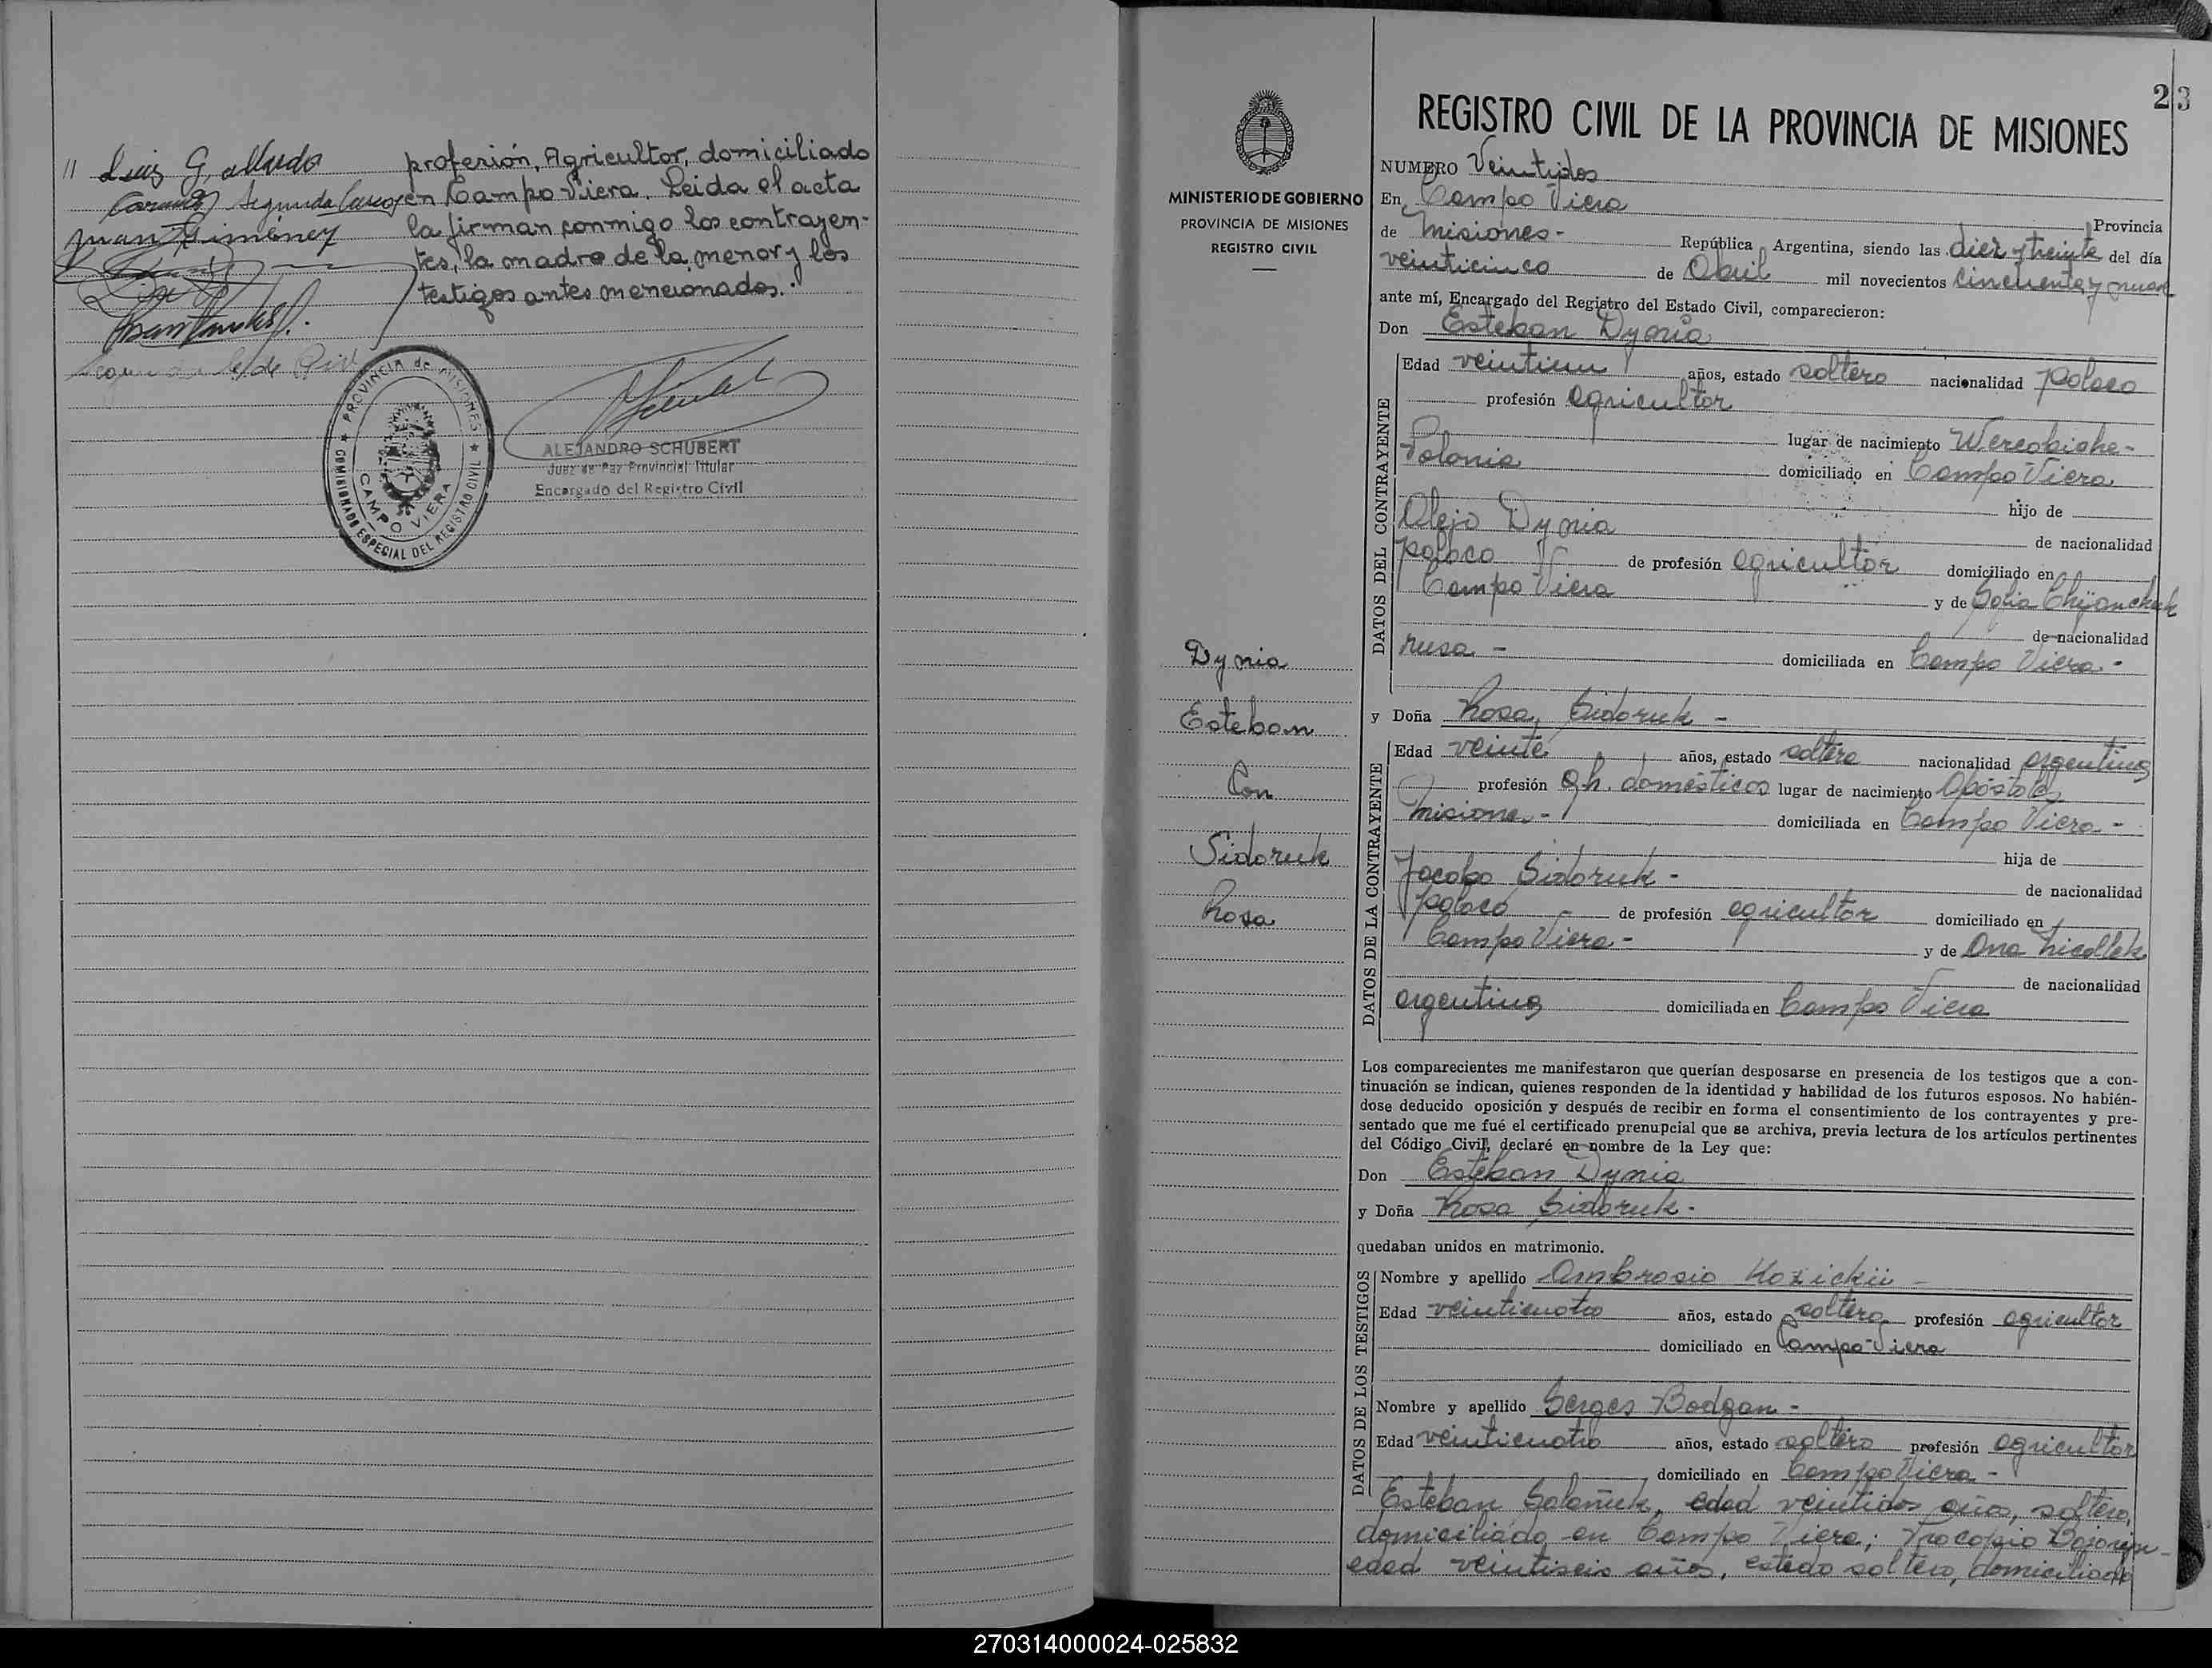 " Luis G. alludo
profesión, Agricultor, domiciliado
Segunda
en Campo Viera. Leida el acta
Juan Gimenez
la firman conmigo los contrayen-
tes, la madre de la menor y los
testigos antes mencionados.
PROVINCIA de MISIONES
CAMPO VIERA
COMISIONADO ESPECIAL DEL REGISTRO CIVIL
ALEJANDRO SCHUBERT
Juez de Paz Provincial Titular
Encargado del Registro Civil
23
MINISTERIO DE GOBIERNO
PROVINCIA DE MISIONES
REGISTRO CIVIL
Dynia
Esteban
Con
Sidoruk
Rosa
REGISTRO CIVIL DE LA PROVINCIA DE MISIONES
NUMERO Veintidos
En Campo Viera
Provincia
de Misiones- República Argentina, siendo las diez y treinta del día
veinticinco de Abril mil novecientos cincuenta y nueve
ante mí, Encargado del Registro del Estado Civil, comparecieron:
Don Esteban Dynia
DATOS DEL CONTRAYENTE
Edad veintiun años, estado soltero nacionalidad Polaco
profesión agricultor
lugar de nacimiento
Polonia domiciliado en Campo Viera
hijo de
Alejo Dynia de nacionalidad
Polaco de profesión agricultor domiciliado en
Campo Viera y de Sofia
de nacionalidad
rusa - domiciliada en Campo Viera.-
y Doña Rosa Sidoruk -
DATOS DE LA CONTRAYENTE
Edad veinte años, estado soltera nacionalidad argentina
profesión qh. domésticos lugar de nacimiento Apóstoles
Misiones.- domiciliada en Campo Viera -
hija de
Jacobo Sidoruk - de nacionalidad
Polaco - de profesión agricultor domiciliado en
Campo Viera - y de Ana
de nacionalidad
argentina domiciliada en Campo Viera
Los comparecientes me manifestaron que querían desposarse en presencia de los testigos que a con-
tinuación se indican, quienes responden de la identidad y habilidad de los futuros esposos. No habién-
dose deducido oposición y después de recibir en forma el consentimiento de los contrayentes y pre-
sentado que me fué el certificado prenupcial que se archiva, previa lectura de los artículos pertinentes
del Código Civil, declaré en nombre de la Ley que:
Don Esteban Dynia
y Doña Rosa Sidoruk.
quedaban unidos en matrimonio.
DATOS DE LOS TESTIGOS
Nombre y apellido Ambrosio Kozickii -
Edad veinticuatro años, estado soltero profesión agricultor
domiciliado en Campo Viera
Nombre y apellido Serges Bodgan -
Edad veinticuatro años, estado soltero profesión agricultor
domiciliado en Campo Viera -
Esteban edad veintidos años, soltero,
domiciliado en Campo Viera; Procopio
edad veintiseis años, estado soltero, domiciliado
270314000024-025832